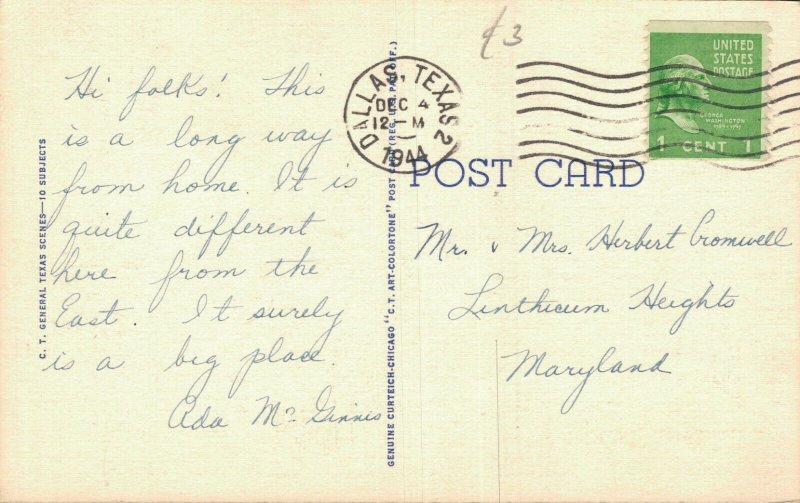 C. T. GENERAL TEXAS SCENES—10 SUBJECTS
Hi folks! This
is a long way
from home. It is
quite different
here from the
East. It surely
is a big place.
Ada Mc Ginnis
GENUINE CURTEICH-CHICAGO "C.T. ART-COLORTONE" POST CARD (REG. U.S. PAT. OFF.)
¢3
DALLAS, TEXAS 2
DEC 4
12 — M
1944
UNITED
STATES
POSTAGE
GEORGE
WASHINGTON
1789-1797
1 CENT 1
POST CARD
Mr. & Mrs. Herbert Cromwell
Linthicum Heights
Maryland